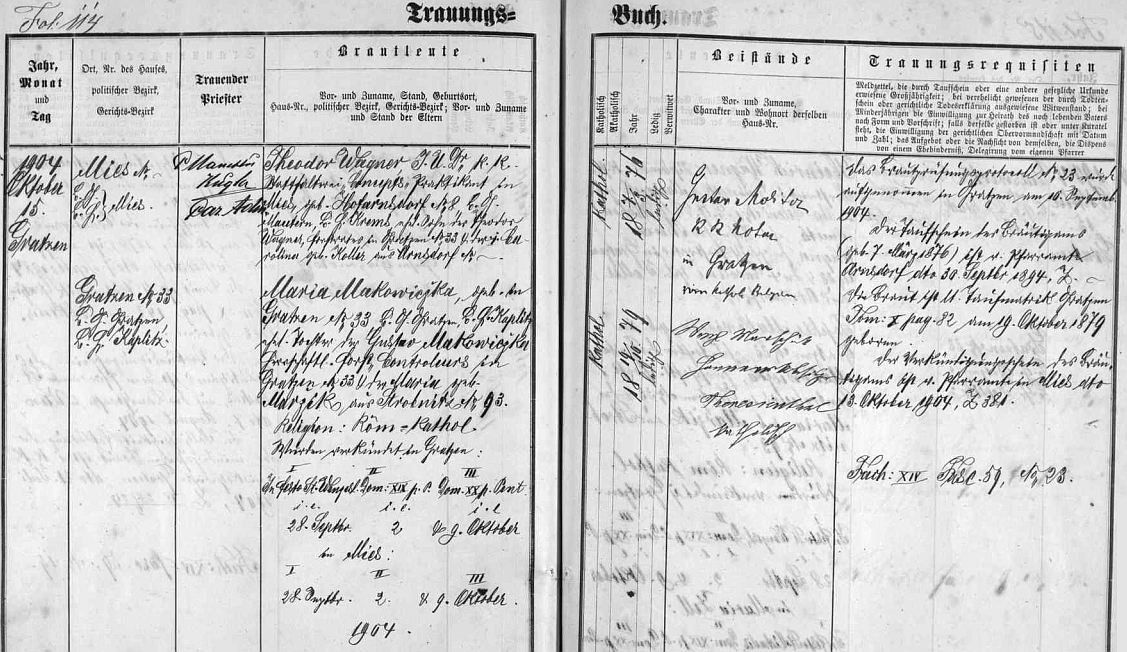 Fol. 114
Trauungs=
Buch.
Jahr,
Monat
und
Tag
Ort, Nr. des Hauses,
politischer Bezirk,
Gerichts-Bezirk
Trauender
Priester
Brautleute
Vor- und Zuname, Stand, Geburtsort,
Haus-Nr., politischer Bezirk, Gerichts-Bezirk; Vor- und Zuname
und Stand der Eltern
Katholisch
Akatholisch
Jahr
Ledig
Verwitwet
Beistände
Vor- und Zuname,
Charakter und Wohnort derselben
Haus-Nr.
Trauungsrequisiten
Meldzettel, die durch Taufschein oder eine andere gesetzliche Urkunde
erwiesene Großjährigkeit; bei verehelicht gewesenen der durch Todten-
schein oder gerichtliche Todeserklärung ausgewiesene Witwenstand; bei
Minderjährigen die Einwilligung zur Heirath des noch lebenden Vaters
nach Form und Vorschrift; falls derselbe gestorben ist oder unter Kuratel
steht, die Einwilligung der gerichtlichen Obervormundschaft mit Datum
und Zahl; das Aufgebot oder die Nachsicht von demselben, die Dispens
von einem Ehehindernis, Delegirung vom eigenen Pfarrer
1904
Oktober
15.
Gratzen
Mies №
B. H. Mies.
Theodor Wagner J. U. Dr. k. k.
Statthalterei-Concepts-Praktikant in
Mies, geb. Hofarnsdorf № 2 B. H.
Krems, ehel. Sohn des Theodor
Wagner, Forstrates in Gratzen № 33 u. der Ca-
rolina geb. Koller aus Arnsdorf №
Gratzen № 33
B. G. Gratzen
B. H. Kaplitz.
Maria Makowiczka, geb. in
Gratzen № 33 B. G. Gratzen, B. H. Kaplitz
ehel. Tochter des Gustav Makowiczka
herrschaftl. Forst-Controleurs in
Gratzen № 33 u. der Maria geb.
Marzik aus Strobnitz № 93.
Religion: Röm=Kathol.
Wurden verkündet in Gratzen:
I II III
In festo St. Wenzesl. Dom. XIX p. P. Dom. XX p. Pent
i. e. i. e. i. e.
28. Septbr. 2 & 9. Oktober
in Mies:
I II III
28. Septbr. 2. & 9. Oktober.
1904.
Kathol.
18 7/3 76
ledig
Kathol
18 19/10 79
ledig
Gustav
K K Notar
in Gratzen
Theresienthal
katholisch
Das Brautprüfungsprotocoll № 23 wurde
aufgenommen in Gratzen am 10. Septemb.
1904.
Der Taufschein des Bräutigams
(geb. 7. März 1876) ist v. Pfarramte
Arnsdorf dto 30. Septbr 1894, Z. -
Die Braut ist lt. Taufmatrik Gratzen
Tom: X pag. 82 am 19. Oktober 1879
geboren.
Der Verkündigungsschein des Bräu-
tigams ist v. Pfarramte in Mies dto
13. Oktober 1904, Z 381.
Fach: XIV Fasc. 59, № 23.